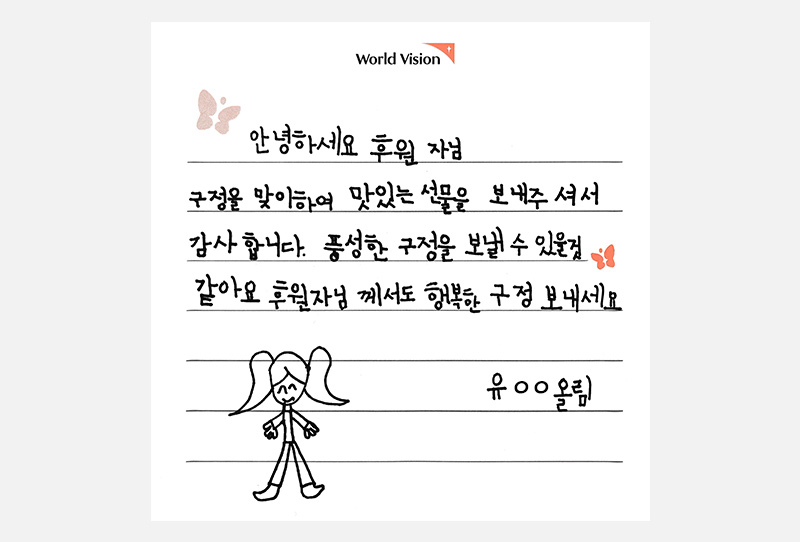 World Vision
안녕하세요 후원 자님
구정을 맞이하여 맛있는 선물을 보내주셔서
감사 합니다. 풍성한 구정을 보낼 수 있을것
같아요 후원자님 께서도 행복한 구정 보내세요
유○○올림